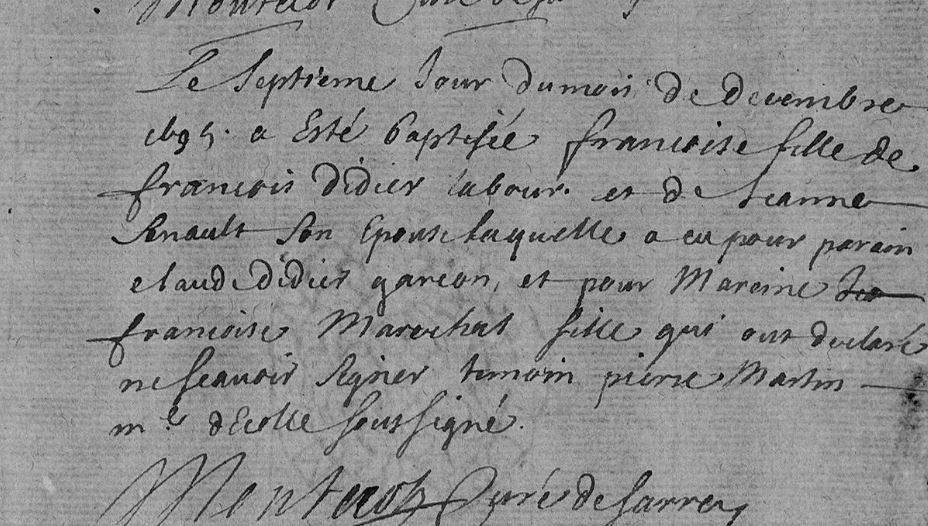 Curé de
Le Septieme Jour du mois de decembre
a Esté baptisée francoise fille de
francois Didier labour. et de Jeanne
son Epouse laquelle a eu pour parain
claude didier garcon, et pour Mareine
francoise Marechal fille qui ont declaré
ne scavoir signer temoin pierre Martin
m.e dEcolle soussigné.
Curé de